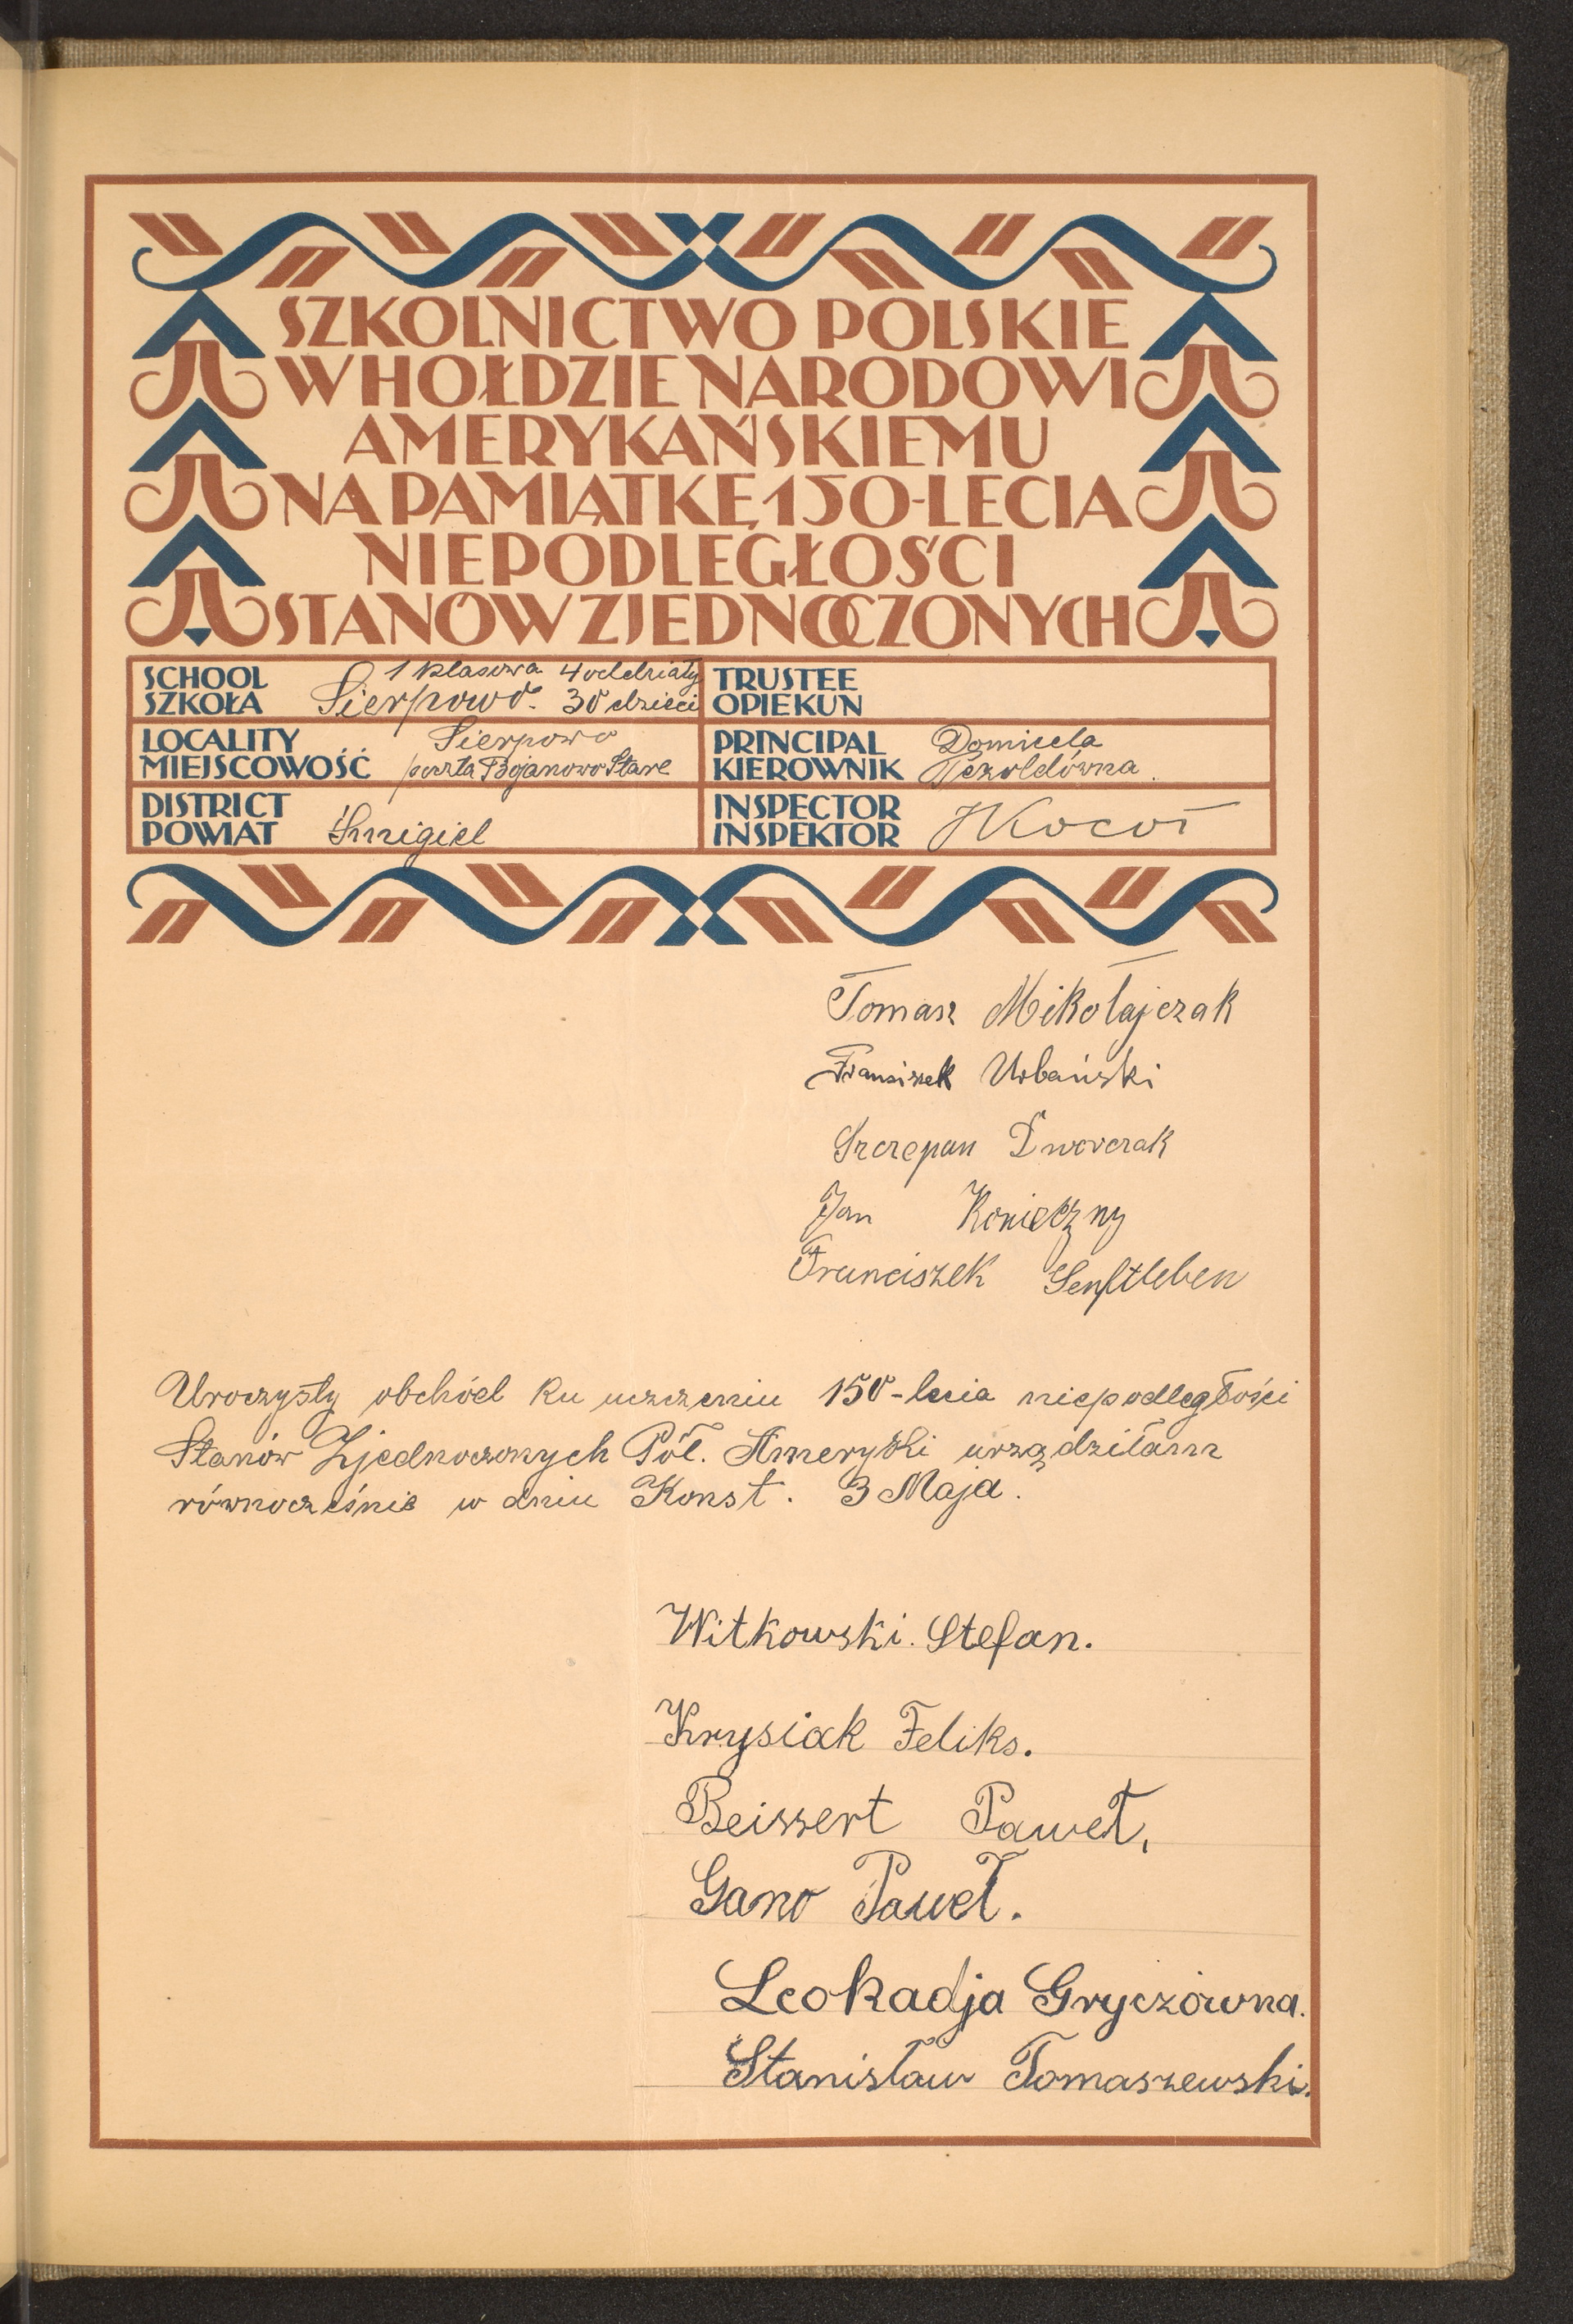 SZKOLNICTWO POLSKIE
W HOŁDZIE NARODOWI
AMERYKAŃSKIEMU
NA PAMIĄTKĘ 150-LECIA
NIEPODLEGŁOŚCI
STANÓW ZJEDNOCZONYCH
SCHOOL
SZKOŁA
1 klasowa 4 oddziały
Sierpowo. 30 dzieci
TRUSTEE
OPIEKUN
LOCALITY
MIEJSCOWOŚĆ
Sierpowo
poczta Bojanowo Stare
PRINCIPAL
KIEROWNIK
Domicela
Pezoldówna.
DISTRICT
POWIAT
Śmigiel
INSPECTOR
INSPEKTOR
Kocoł
Tomasz Mikołajczak
Fransiszek Urbański
Szczepan Dworczak
Jan Konieczny
Franciszek Senftleben
Uroczysty obchód ku uczczeniu 150-lecia niepodległości
Stanów Zjednoczonych Pół. Ameryki urządziłam
równocześnie w dniu Konst. 3 Maja.
Witkowski. Stefan.
Krysiak Feliks.
Beissert Paweł,
Gano Paweł.
Leokadja Gryczówna.
Stanisław Tomaszewski.